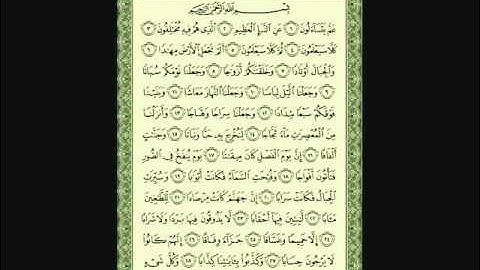 بِسْمِ ٱللَّهِ ٱلرَّحْمَـٰنِ ٱلرَّحِيمِ
عَمَّ يَتَسَآءَلُونَ ١ عَنِ ٱلنَّبَإِ ٱلْعَظِيمِ ٢ ٱلَّذِى هُمْ فِيهِ مُخْتَلِفُونَ ٣
كَلَّا سَيَعْلَمُونَ ٤ ثُمَّ كَلَّا سَيَعْلَمُونَ ٥ أَلَمْ نَجْعَلِ ٱلْأَرْضَ مِهَـٰدًا ٦
وَٱلْجِبَالَ أَوْتَادًا ٧ وَخَلَقْنَـٰكُمْ أَزْوَٰجًا ٨ وَجَعَلْنَا نَوْمَكُمْ سُبَاتًا
٩ وَجَعَلْنَا ٱلَّيْلَ لِبَاسًا ١٠ وَجَعَلْنَا ٱلنَّهَارَ مَعَاشًا ١١ وَبَنَيْنَا
فَوْقَكُمْ سَبْعًا شِدَادًا ١٢ وَجَعَلْنَا سِرَاجًا وَهَّاجًا ١٣ وَأَنزَلْنَا
مِنَ ٱلْمُعْصِرَٰتِ مَآءً ثَجَّاجًا ١٤ لِّنُخْرِجَ بِهِۦ حَبًّا وَنَبَاتًا ١٥ وَجَنَّـٰتٍ
أَلْفَافًا ١٦ إِنَّ يَوْمَ ٱلْفَصْلِ كَانَ مِيقَـٰتًا ١٧ يَوْمَ يُنفَخُ فِى ٱلصُّورِ
فَتَأْتُونَ أَفْوَاجًا ١٨ وَفُتِحَتِ ٱلسَّمَآءُ فَكَانَتْ أَبْوَٰبًا ١٩ وَسُيِّرَتِ
ٱلْجِبَالُ فَكَانَتْ سَرَابًا ٢٠ إِنَّ جَهَنَّمَ كَانَتْ مِرْصَادًا ٢١ لِّلطَّـٰغِينَ
مَـَٔابًا ٢٢ لَّـٰبِثِينَ فِيهَآ أَحْقَابًا ٢٣ لَّا يَذُوقُونَ فِيهَا بَرْدًا وَلَا شَرَابًا
٢٤ إِلَّا حَمِيمًا وَغَسَّاقًا ٢٥ جَزَآءً وِفَاقًا ٢٦ إِنَّهُمْ كَانُوا۟
لَا يَرْجُونَ حِسَابًا ٢٧ وَكَذَّبُوا۟ بِـَٔايَـٰتِنَا كِذَّابًا ٢٨ وَكُلَّ شَىْءٍ